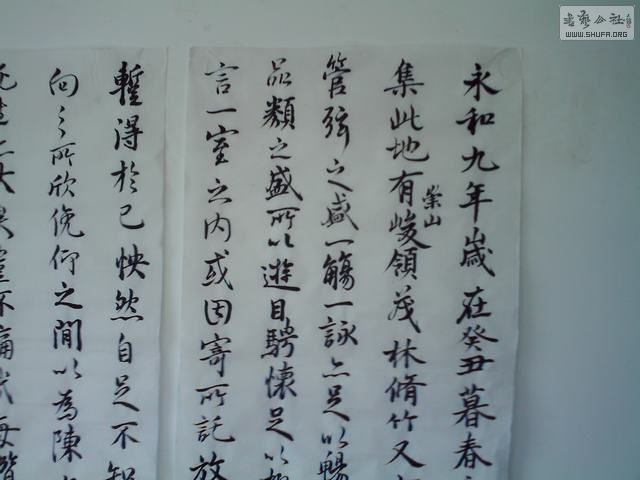 永和九年歲在癸丑暮春
集此地有峻領茂林脩竹又
崇山
管弦之盛一觴一詠亦足以暢
品類之盛所以遊目騁懷足以
言一室之内或因寄所託放
暫得於己怏然自足不知
向之所欣俛仰之間以為陳
書藝公社
WWW.SHUFA.ORG